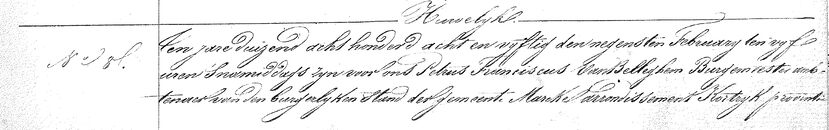 Huwelyk
N° 81.
Ten jare duizend acht honderd acht en vyftig den negensten February ten vyf
uren 's namiddags zyn voor ons Petrus Franciscus Van Belleghem Burgemeester amb-
tenaer van den burgerlyken stand der gemeente Marcke Arrondissement Kortryk provintie